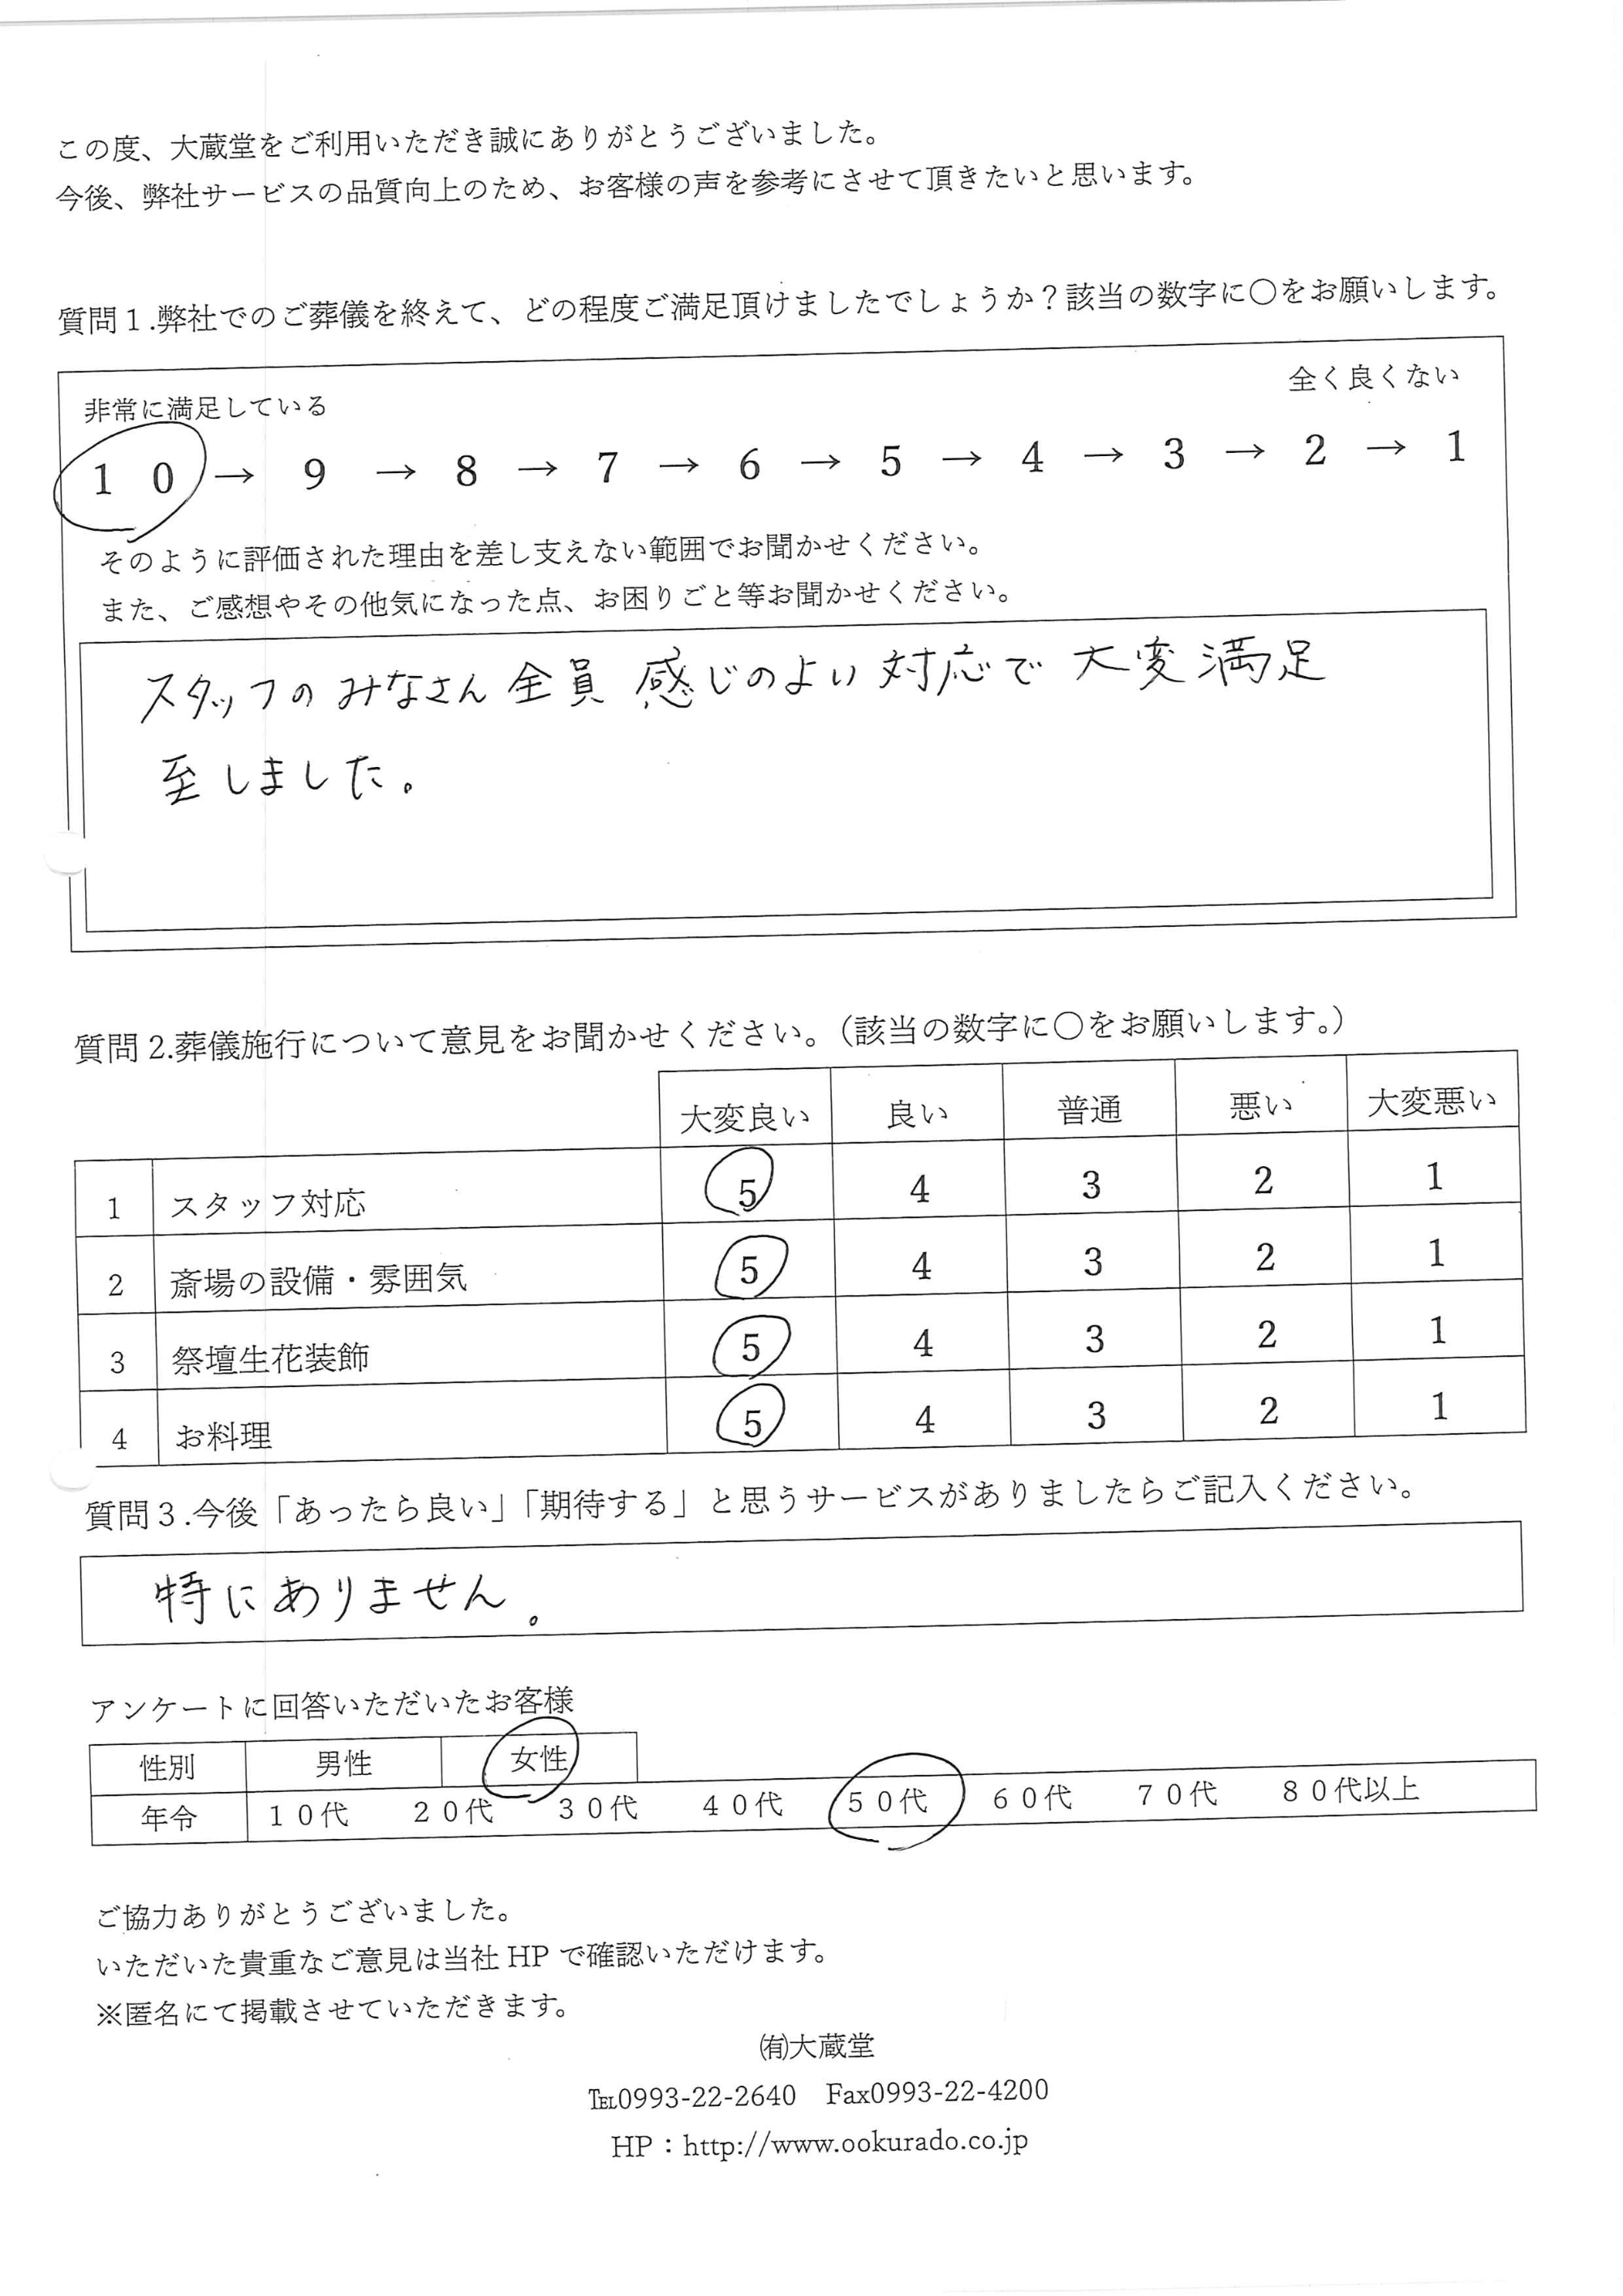 この度、大蔵堂をご利用いただき誠にありがとうございました。
今後、弊社サービスの品質向上のため、お客様の声を参考にさせて頂きたいと思います。
質問１.弊社でのご葬儀を終えて、どの程度ご満足頂けましたでしょうか？該当の数字に〇をお願いします。
非常に満足している 全く良くない
１０ → 9 → 8 → 7 → 6 → 5 → 4 → 3 → 2 → 1
そのように評価された理由を差し支えない範囲でお聞かせください。
また、ご感想やその他気になった点、お困りごと等お聞かせください。
スタッフのみなさん全員感じのよい対応で大変満足
至しました。
質問2.葬儀施行について意見をお聞かせください。（該当の数字に〇をお願いします。）
大変良い 良い 普通 悪い 大変悪い
1 スタッフ対応 5 4 3 2 1
2 斎場の設備・雰囲気 5 4 3 2 1
3 祭壇生花装飾 5 4 3 2 1
4 お料理 5 4 3 2 1
質問３.今後「あったら良い」「期待する」と思うサービスがありましたらご記入ください。
特にありません。
アンケートに回答いただいたお客様
性別 男性 女性
年令 １０代 ２０代 ３０代 ４０代 ５０代 ６０代 ７０代 ８０代以上
ご協力ありがとうございました。
いただいた貴重なご意見は当社 HP で確認いただけます。
※匿名にて掲載させていただきます。
㈲大蔵堂
℡0993-22-2640 Fax0993-22-4200
HP：http://www.ookurado.co.jp